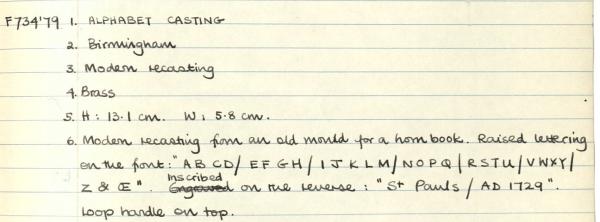 F734'79 1. ALPHABET CASTING
2. Birmingham
3. Modern recasting
4. Brass
5. H: 13.1 cm. W: 5.8 cm.
6. Modern recasting from an old mould for a horn book. Raised lettering
on the front: "AB CD/ EF GH/ IJ KLM/NOPQ/RSTU/VWXY/
Z & Œ". Inscribed on the reverse: "St Pauls / AD 1729".
Loop handle on top.